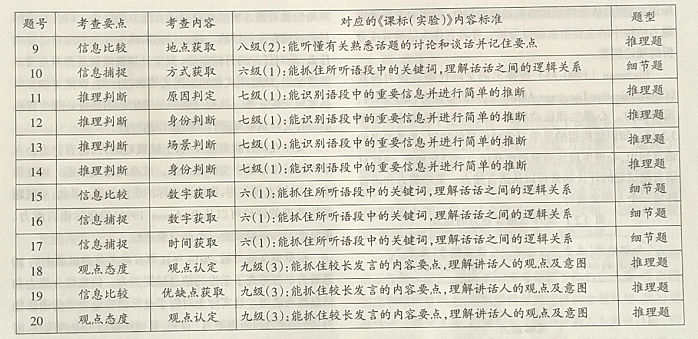 题号 考查要点 考查内容 对应的《课标(实验)》内容标准 题型
9 信息比较 地点获取 八级(2):能听懂有关熟悉话题的讨论和谈话并记住要点 推理题
10 信息捕捉 方式获取 六级(1):能抓住所听语段中的关键词,理解话话之间的逻辑关系 细节题
11 推理判断 原因判定 七级(1):能识别语段中的重要信息并进行简单的推断 推理题
12 推理判断 身份判断 七级(1):能识别语段中的重要信息并进行简单的推断 推理题
13 推理判断 场景判断 七级(1):能识别语段中的重要信息并进行简单的推断 推理题
14 推理判断 身份判断 七级(1):能识别语段中的重要信息并进行简单的推断 推理题
15 信息比较 数字获取 六(1):能抓住所听语段中的关键词,理解话话之间的逻辑关系 细节题
16 信息捕捉 数字获取 六(1):能抓住所听语段中的关键词,理解话话之间的逻辑关系 细节题
17 信息捕捉 时间获取 六(1):能抓住所听语段中的关键词,理解话话之间的逻辑关系 细节题
18 观点态度 观点认定 九级(3):能抓住较长发言的内容要点,理解讲话人的观点及意图 推理题
19 信息比较 优缺点获取 九级(3):能抓住较长发言的内容要点,理解讲话人的观点及意图 推理题
20 观点态度 观点认定 九级(3):能抓住较长发言的内容要点,理解讲话人的观点及意图 推理题